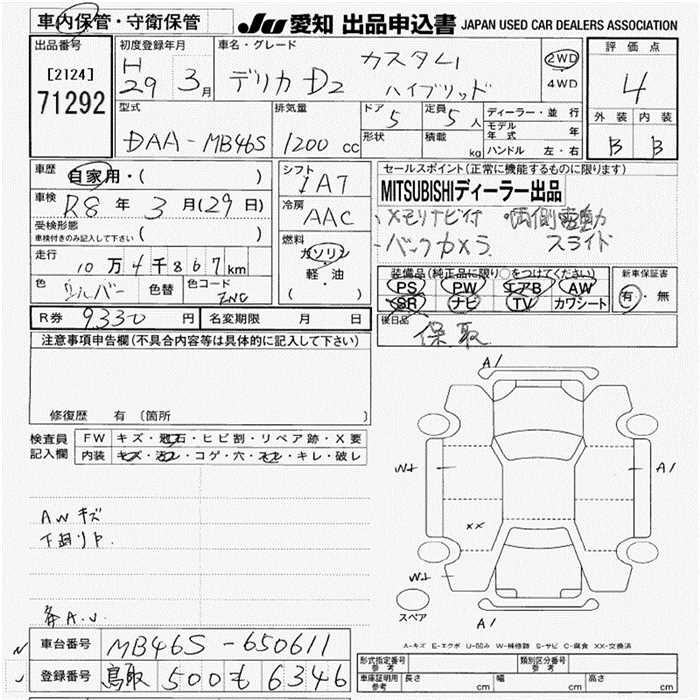 車内保管・守衛保管 JU 愛知 出品申込書 JAPAN USED CAR DEALERS ASSOCIATION
出品番号
[2124]
71292
初度登録年月
H
29 3月
車名・グレード
デリカ D2 カスタム
ハイブリッド
2WD
4WD
評価点
4
外装 内装
B B
型式
DAA-MB46S
排気量
1200 cc
ドア 5
形状
定員 5 人
積載 kg
ディーラー・並行
モデル年式 年
ハンドル 左・右
車歴
自家用・( )
車検
R8 年 3 月(29日)
受検形態
車検付きのみ記入して下さい ( )
走行
10万4千867km
色 シルバー 色替 色コード ZNC
シフト
IAT
冷房
AAC
燃料
ガソリン
・軽・油
( )
セールスポイント(正常に機能するものに限ります)
MITSUBISHIディーラー出品
メモリナビ付 ・両側電動
・バックカメラ スライド
装備品(純正品に限り○をつけてください)
PS PW エアB AW
SR ナビ TV カワシート
新車保証書
有・無
後日品
保 取
R券 9330 円 名変期限 月 日
注意事項申告欄(不具合内容等は具体的に記入して下さい)
修復歴 有 〔箇所
検査員
記入欄
FW キズ・飛石・ヒビ割・リペア跡・X要
内装 キズ・汚レ・コゲ・穴・スレ・キレ・破レ
AWキズ
下廻りP.
A1
W+ A1
XX
W+
スペア
A1
A-キズ E-エクボ U-凹み W-補修跡 S-サビ C-腐食 XX-交換済
車台番号 MB46S-650611
登録番号 鳥取 500 も 6346
形式指定番号
参考
類別区分番号
参考
車庫証明用
参考
長さ cm 幅 cm 高さ cm